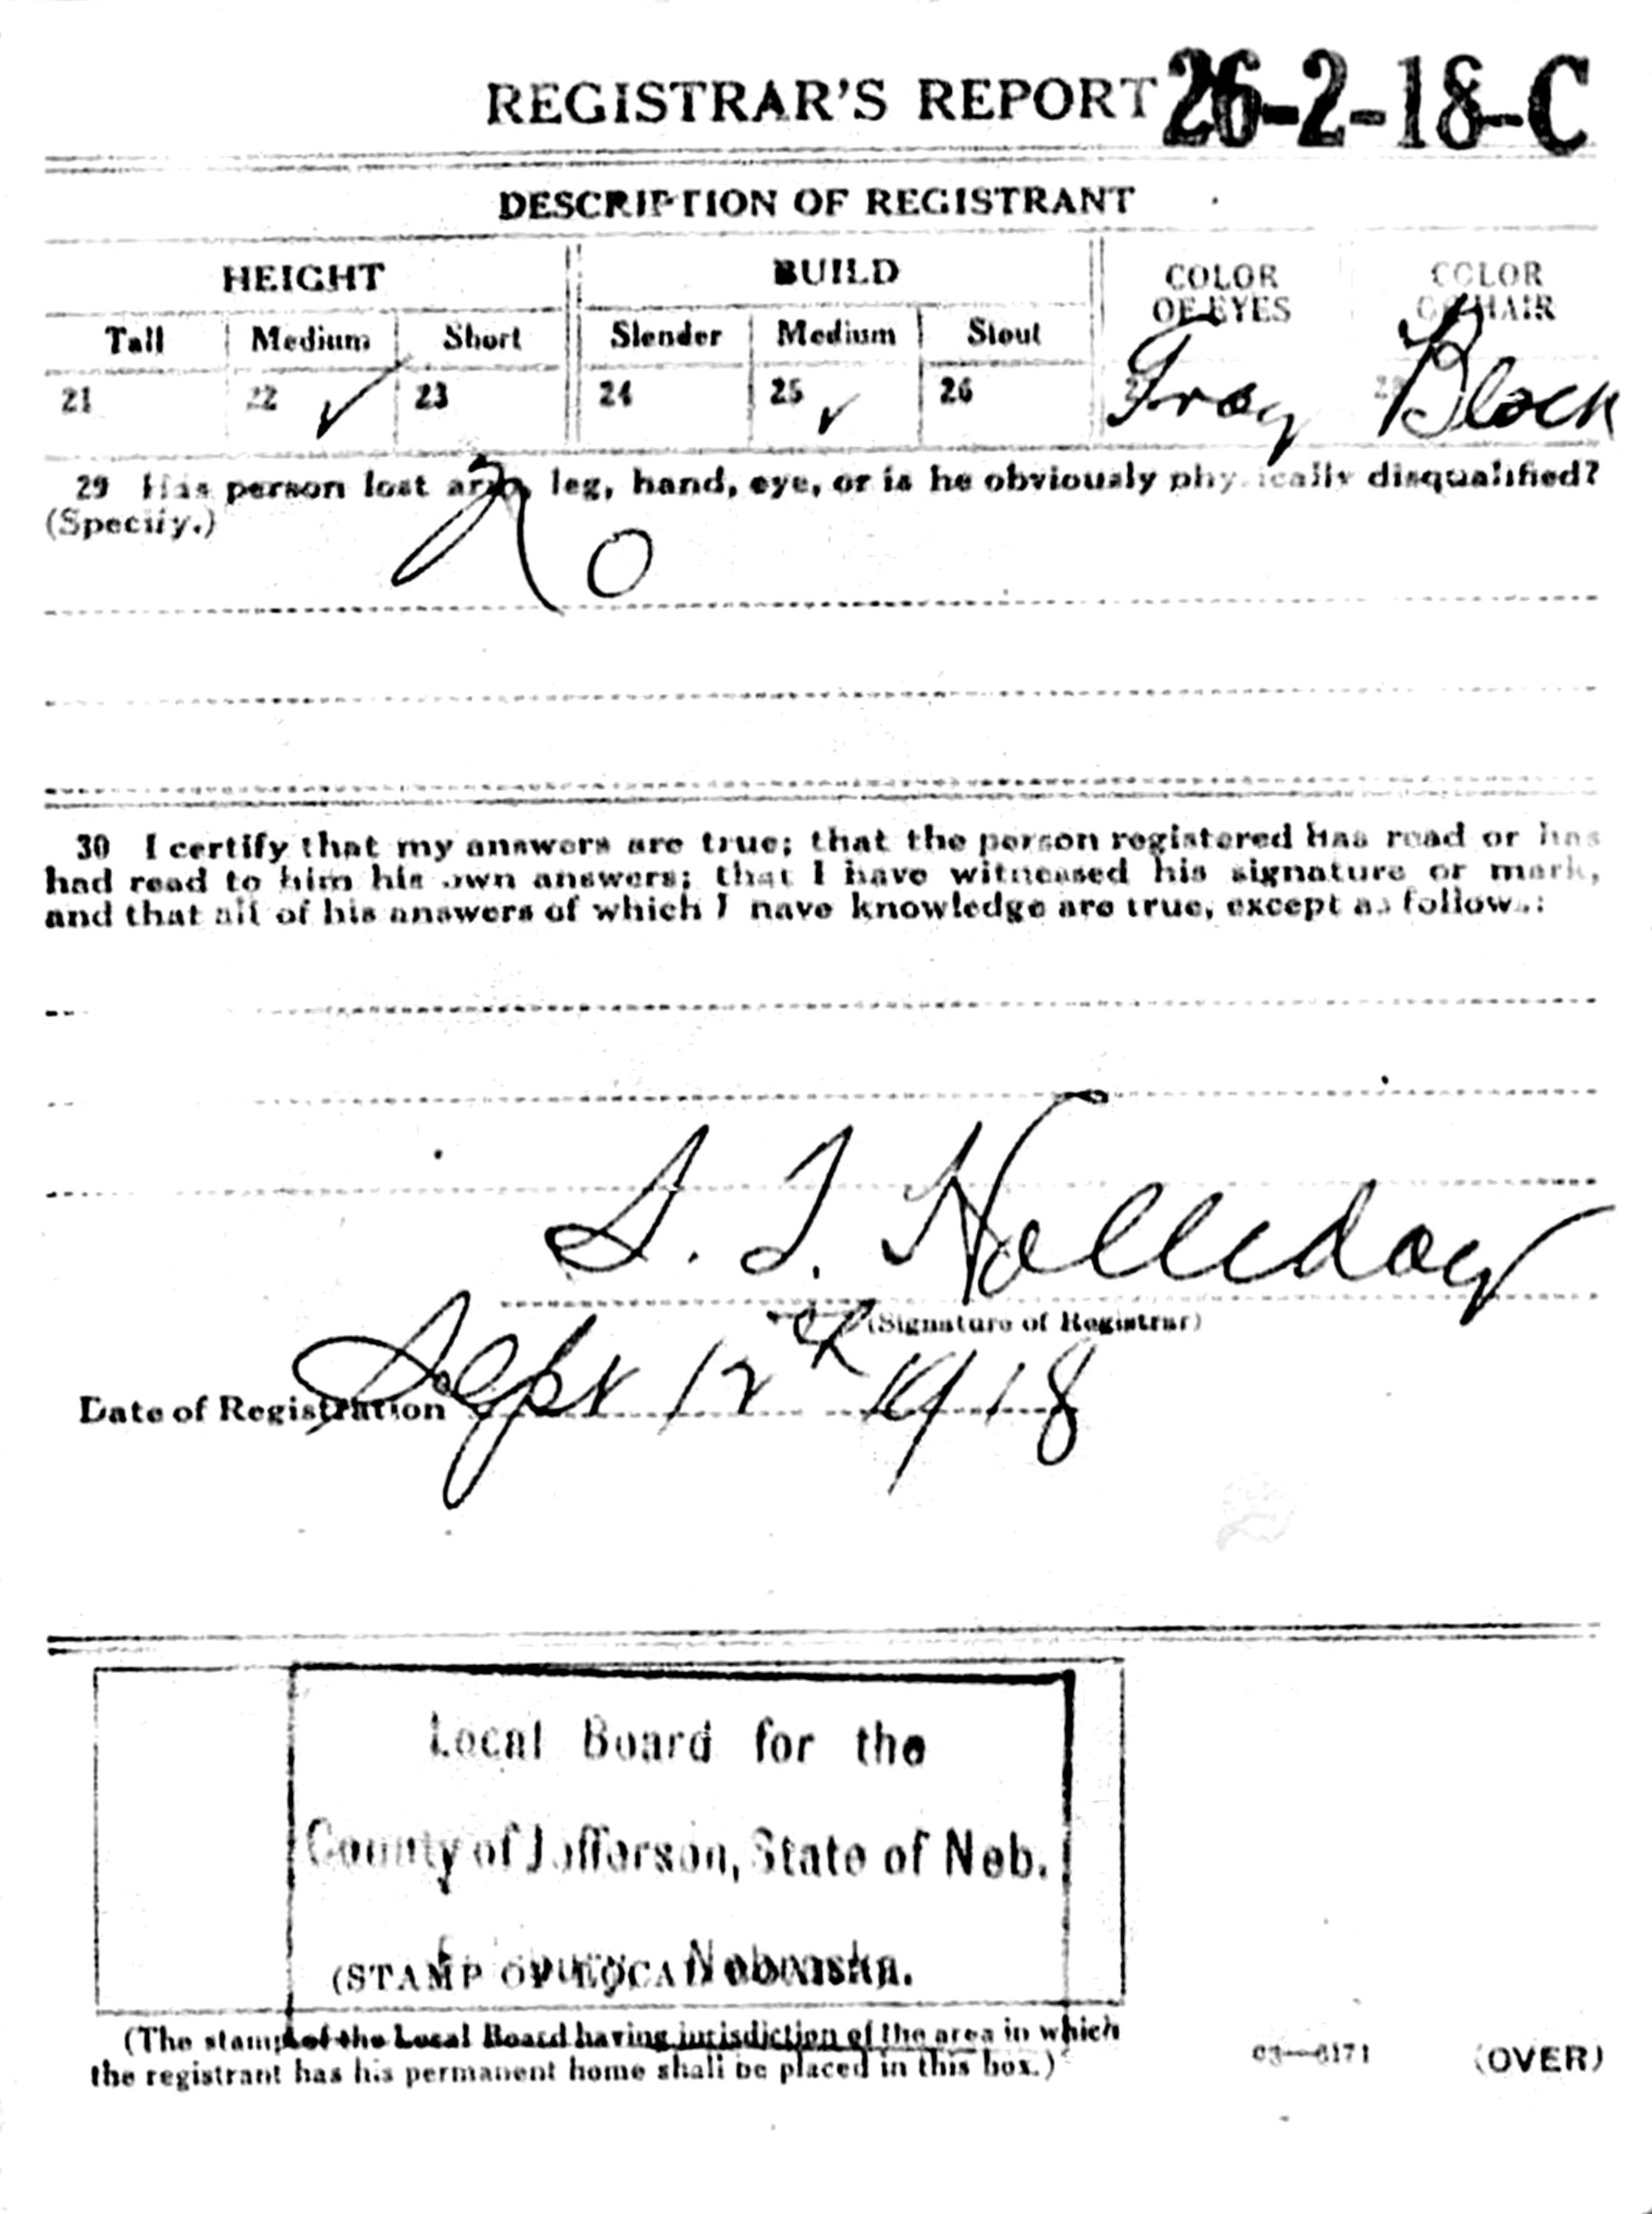 REGISTRAR'S REPORT 26-2-18-C
DESCRIPTION OF REGISTRANT
HEIGHT BUILD COLOR OF EYES COLOR OF HAIR
Tall Medium Short Slender Medium Stout
21 22 ✓ 23 24 25 ✓ 26 Gray Black
29 Has person lost arm, leg, hand, eye, or is he obviously physically disqualified?
(Specify.)
No
30 I certify that my answers are true; that the person registered has read or has
had read to him his own answers; that I have witnessed his signature or mark,
and that all of his answers of which I have knowledge are true, except as follows:
Holliday
(Signature of Registrar)
Date of Registration Sept 12th 1918
Local Board for the
County of Jefferson, State of Neb.
Nebraska.
(STAMP OF LOCAL
(The stamp of the Local Board having jurisdiction of the area in which
the registrant has his permanent home shall be placed in this box.)
03—6171 (OVER)